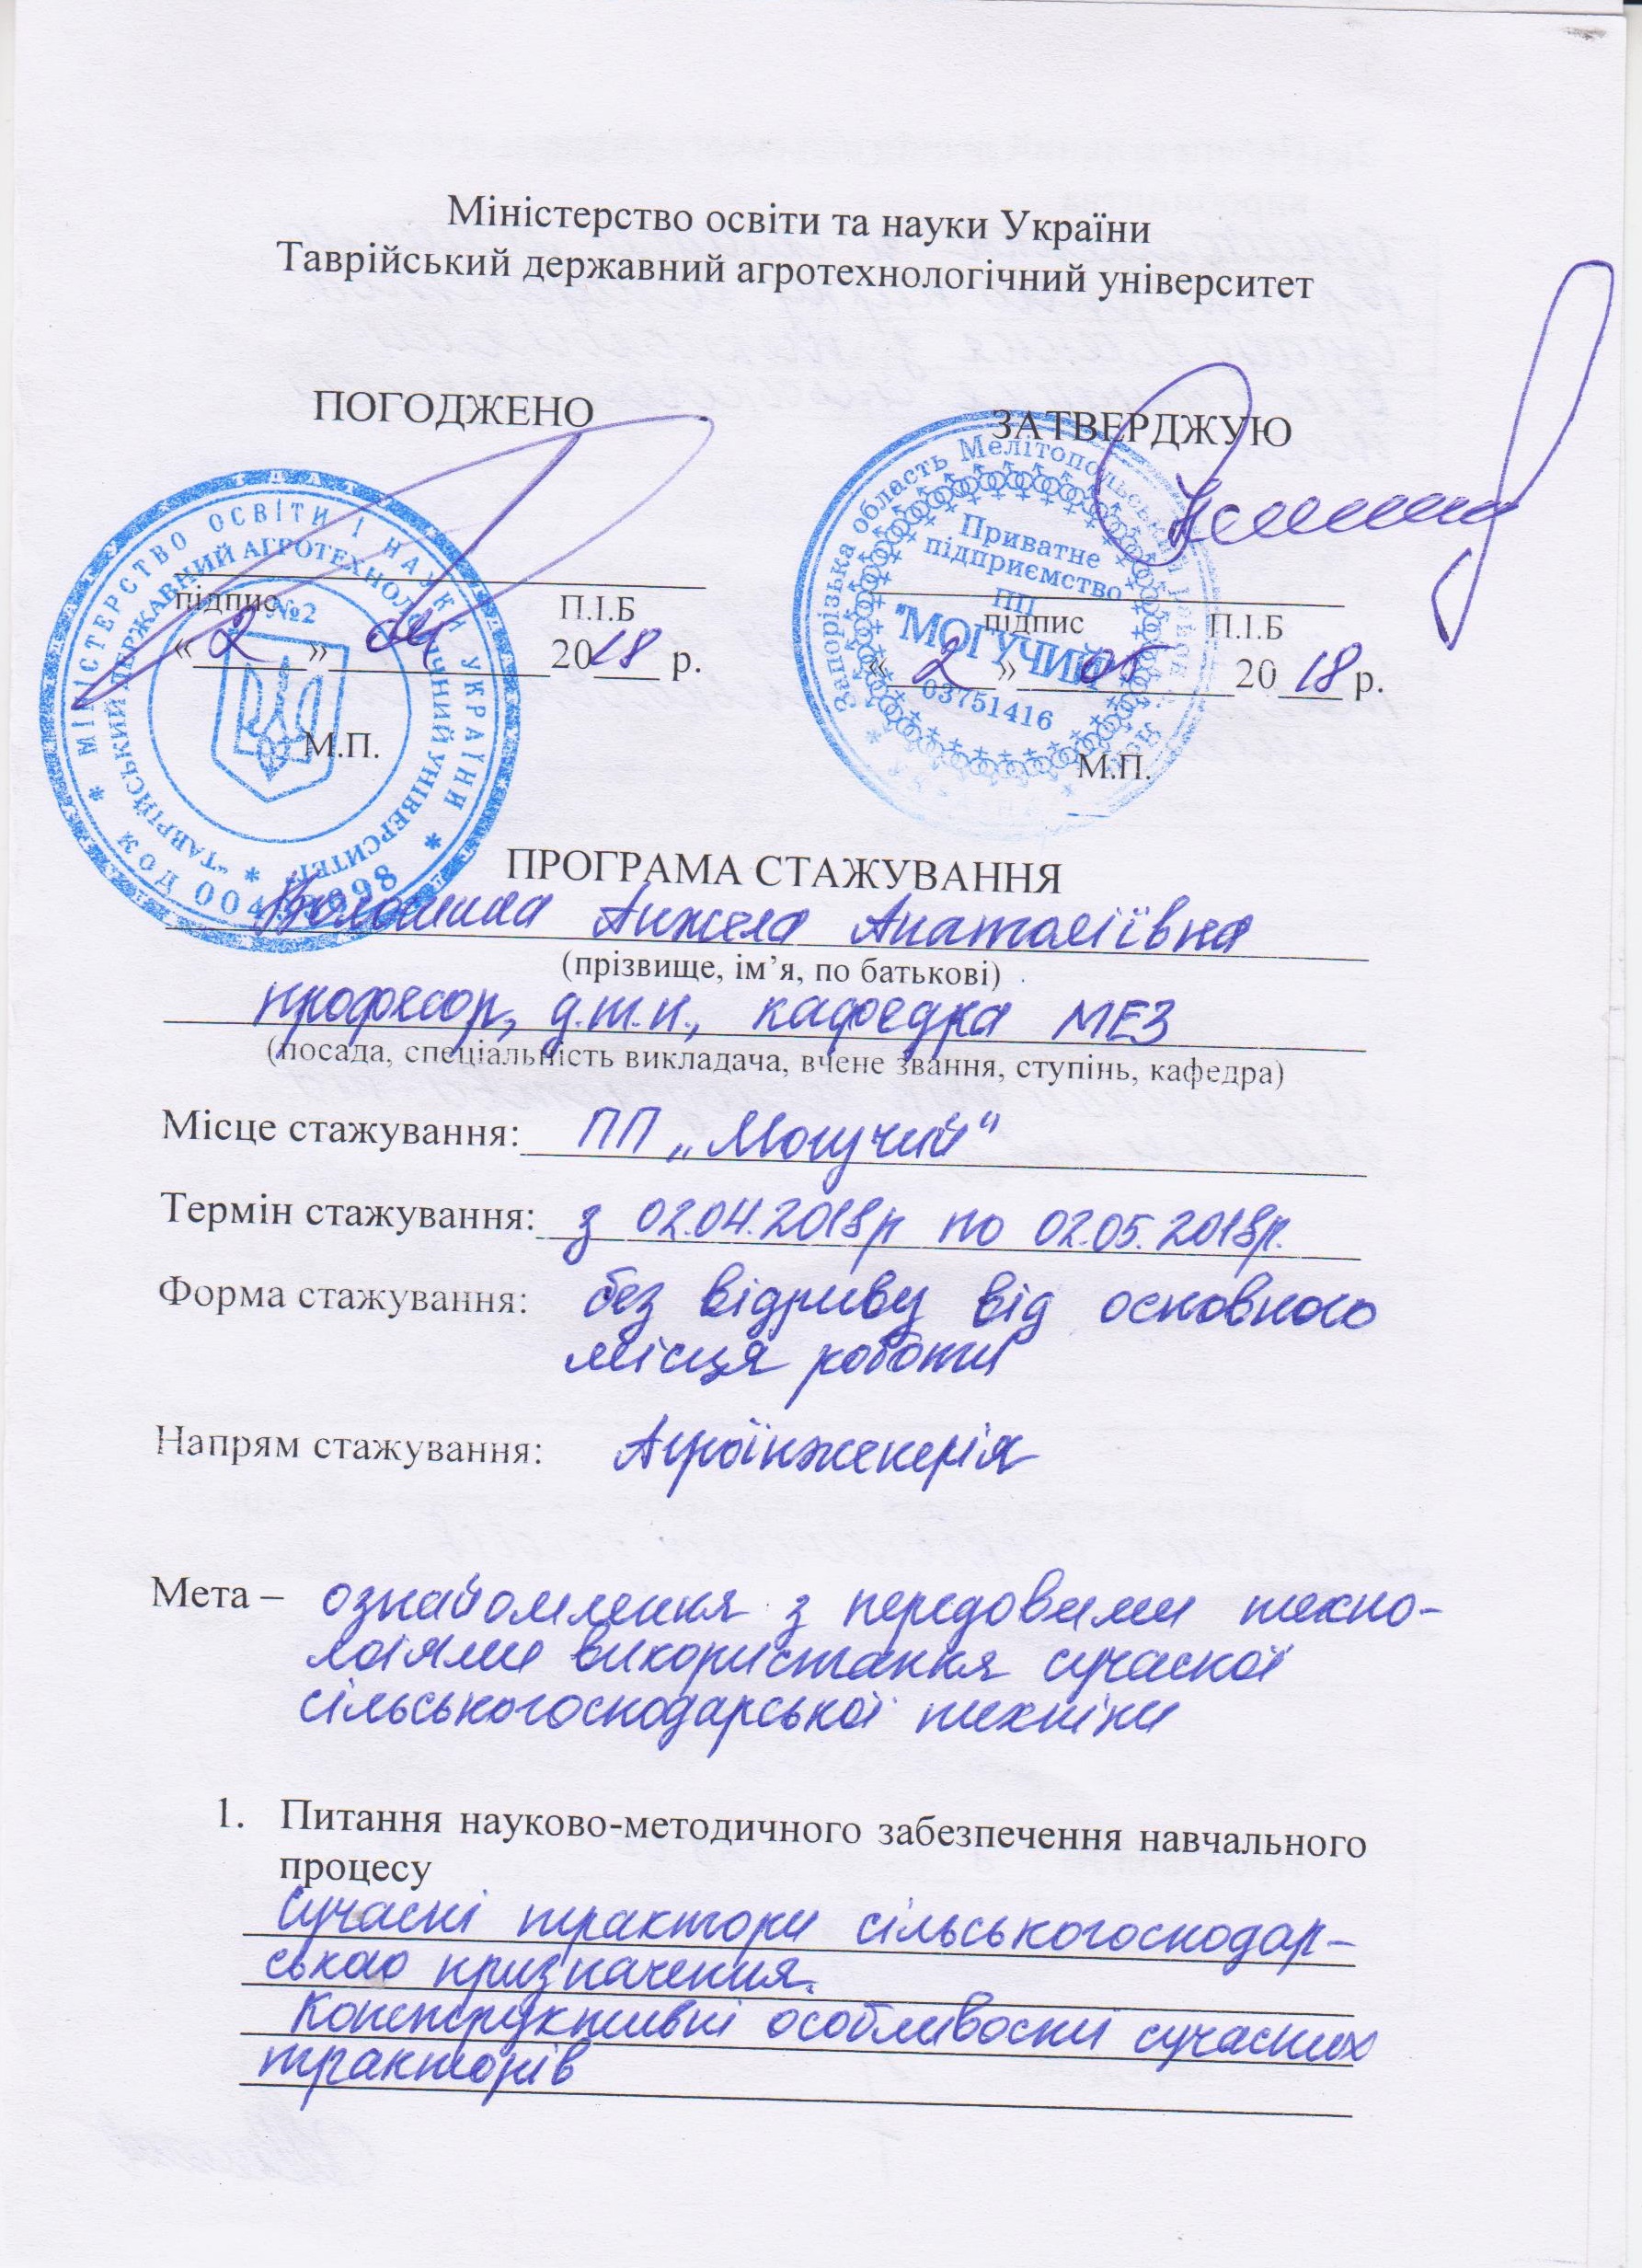 Міністерство освіти та науки України
Таврійський державний агротехнологічний університет
ПОГОДЖЕНО
ЗАТВЕРДЖУЮ
МІНІСТЕРСТВО ОСВІТИ І НАУКИ УКРАЇНИ
"ТАВРІЙСЬКИЙ ДЕРЖАВНИЙ АГРОТЕХНОЛОГІЧНИЙ УНІВЕРСИТЕТ"
№2
Запорізька область Мелітопольський
Приватне
підприємство
ПП
"МОГУЧИЙ"
03751416
підпис П.І.Б
«2» 04 2018 р.
М.П.
підпис П.І.Б
«2» 05 2018 р.
М.П.
ПРОГРАМА СТАЖУВАННЯ
Волошина Анжела Анатоліївна
(прізвище, ім’я, по батькові)
професор, д.т.н., кафедра МЕЗ
(посада, спеціальність викладача, вчене звання, ступінь, кафедра)
Місце стажування: ПП „Могучий“
Термін стажування: з 02.04.2018р по 02.05.2018р.
Форма стажування: без відриву від основного
місця роботи
Напрям стажування: Агроінженерія
Мета – ознайомлення з передовими техно-
логіями використання сучасної
сільськогосподарської техніки
1. Питання науково-методичного забезпечення навчального
процесу
Сучасні трактори сільськогосподар-
ського призначення.
Конструктивні особливості сучасних
тракторів